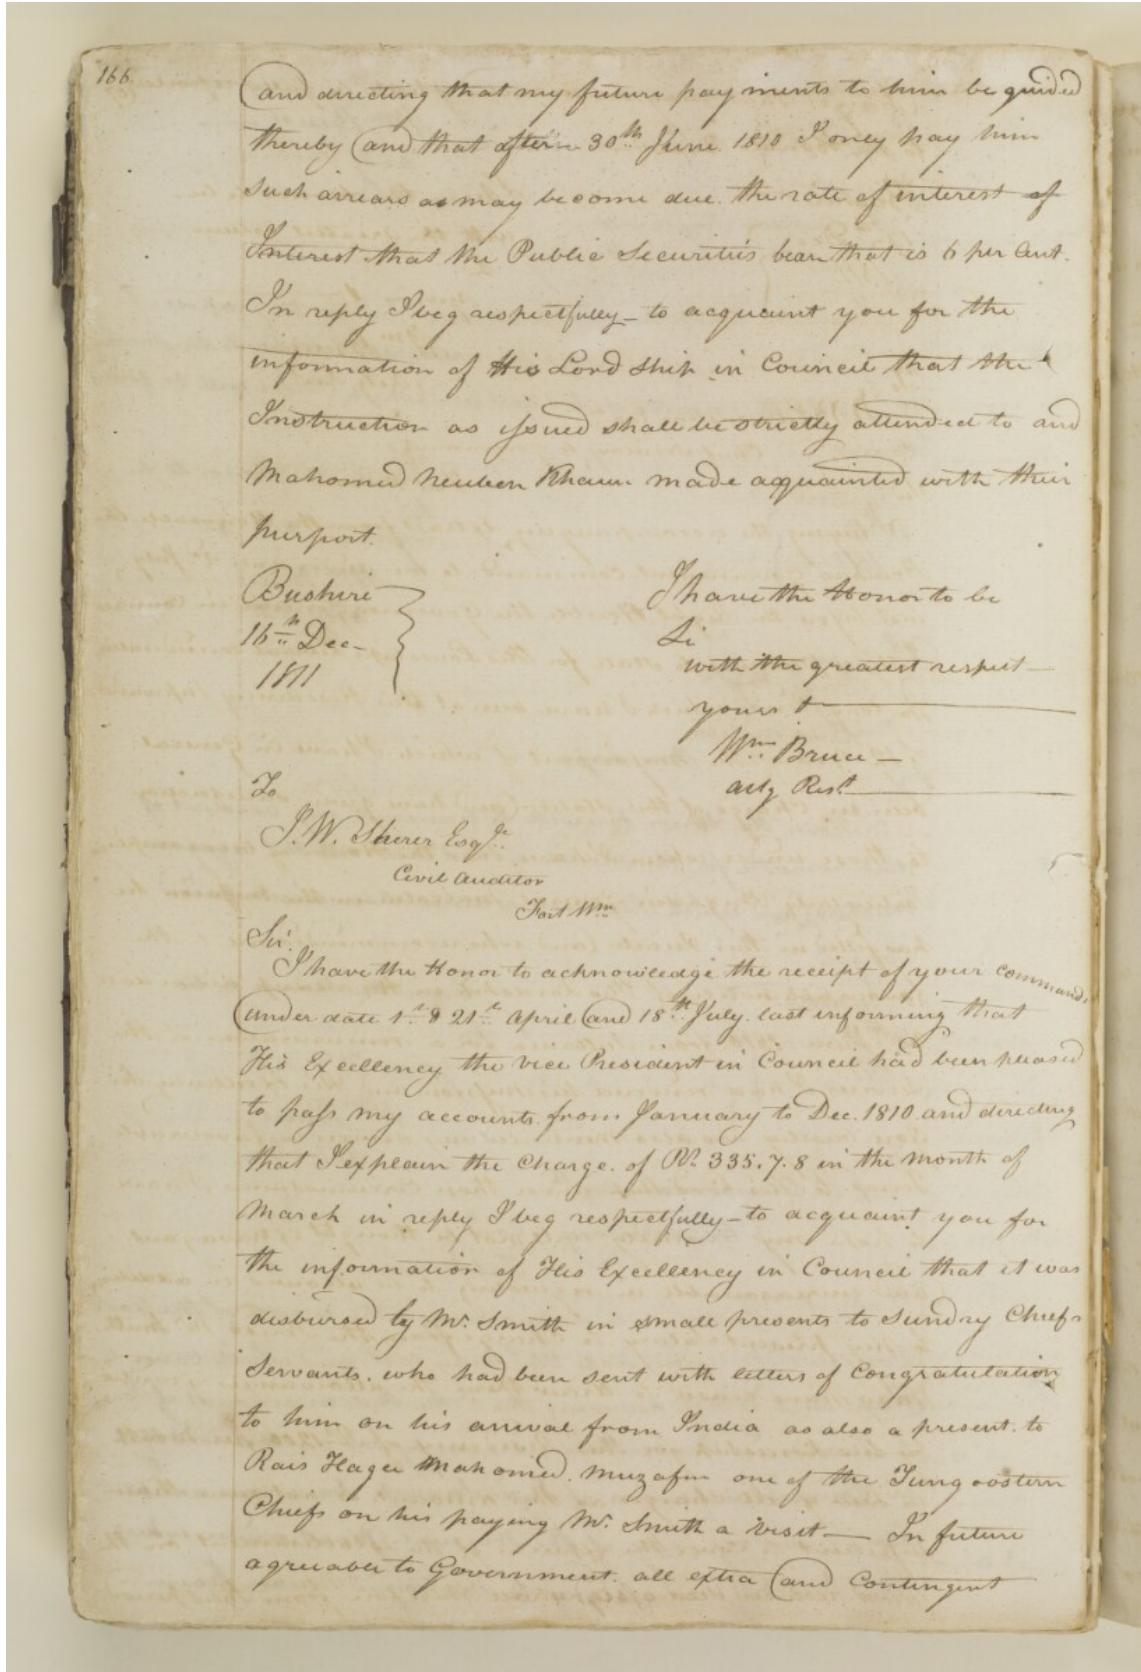 166
and directing that my future payments to him be guided
thereby and that after 30th June. 1810 I only pay him
such arrears as may become due. the rate of interest of
Interest that the Public Securitiis bear that is 6 per Cent.
In reply I beg respectfully - to acquaint you for the
information of His Lord Ship in Council that the
Instruction as issued shall be strictly attended to and
Mahomed Khaun made acquainted with their
purport.
Bushire
16th Dec-
1811
I have the Honor to be
Si
with the greatest respect
yours &
Wm Bruce
actg Rest
To
J. W. Sherer Esqr.
Civil Auditor
Fort Wm
Sir.
I have the Honor to acknowledge the receipt of your commands
under date 1st & 21st April and 18th July. last informing that
His Excellency the vice President in Council had been pleased
to pass my accounts from January to Dec. 1810 and directing
that I explain the Charge. of Rs 335.7.8 in the month of
March in reply I beg respectfully - to acquaint you for
the information of His Excellency in Council that it was
disbursed by Mr. Smith in small presents to Sundry Chiefs
Servants. who had been sent with letters of Congratulation
to him on his arrival from India as also a present. to
Rais Hagee Mahomed. one of the Tungoostern
Chiefs on his paying Mr. Smith a visit — In future
agreeable to Government. all extra and Contingent